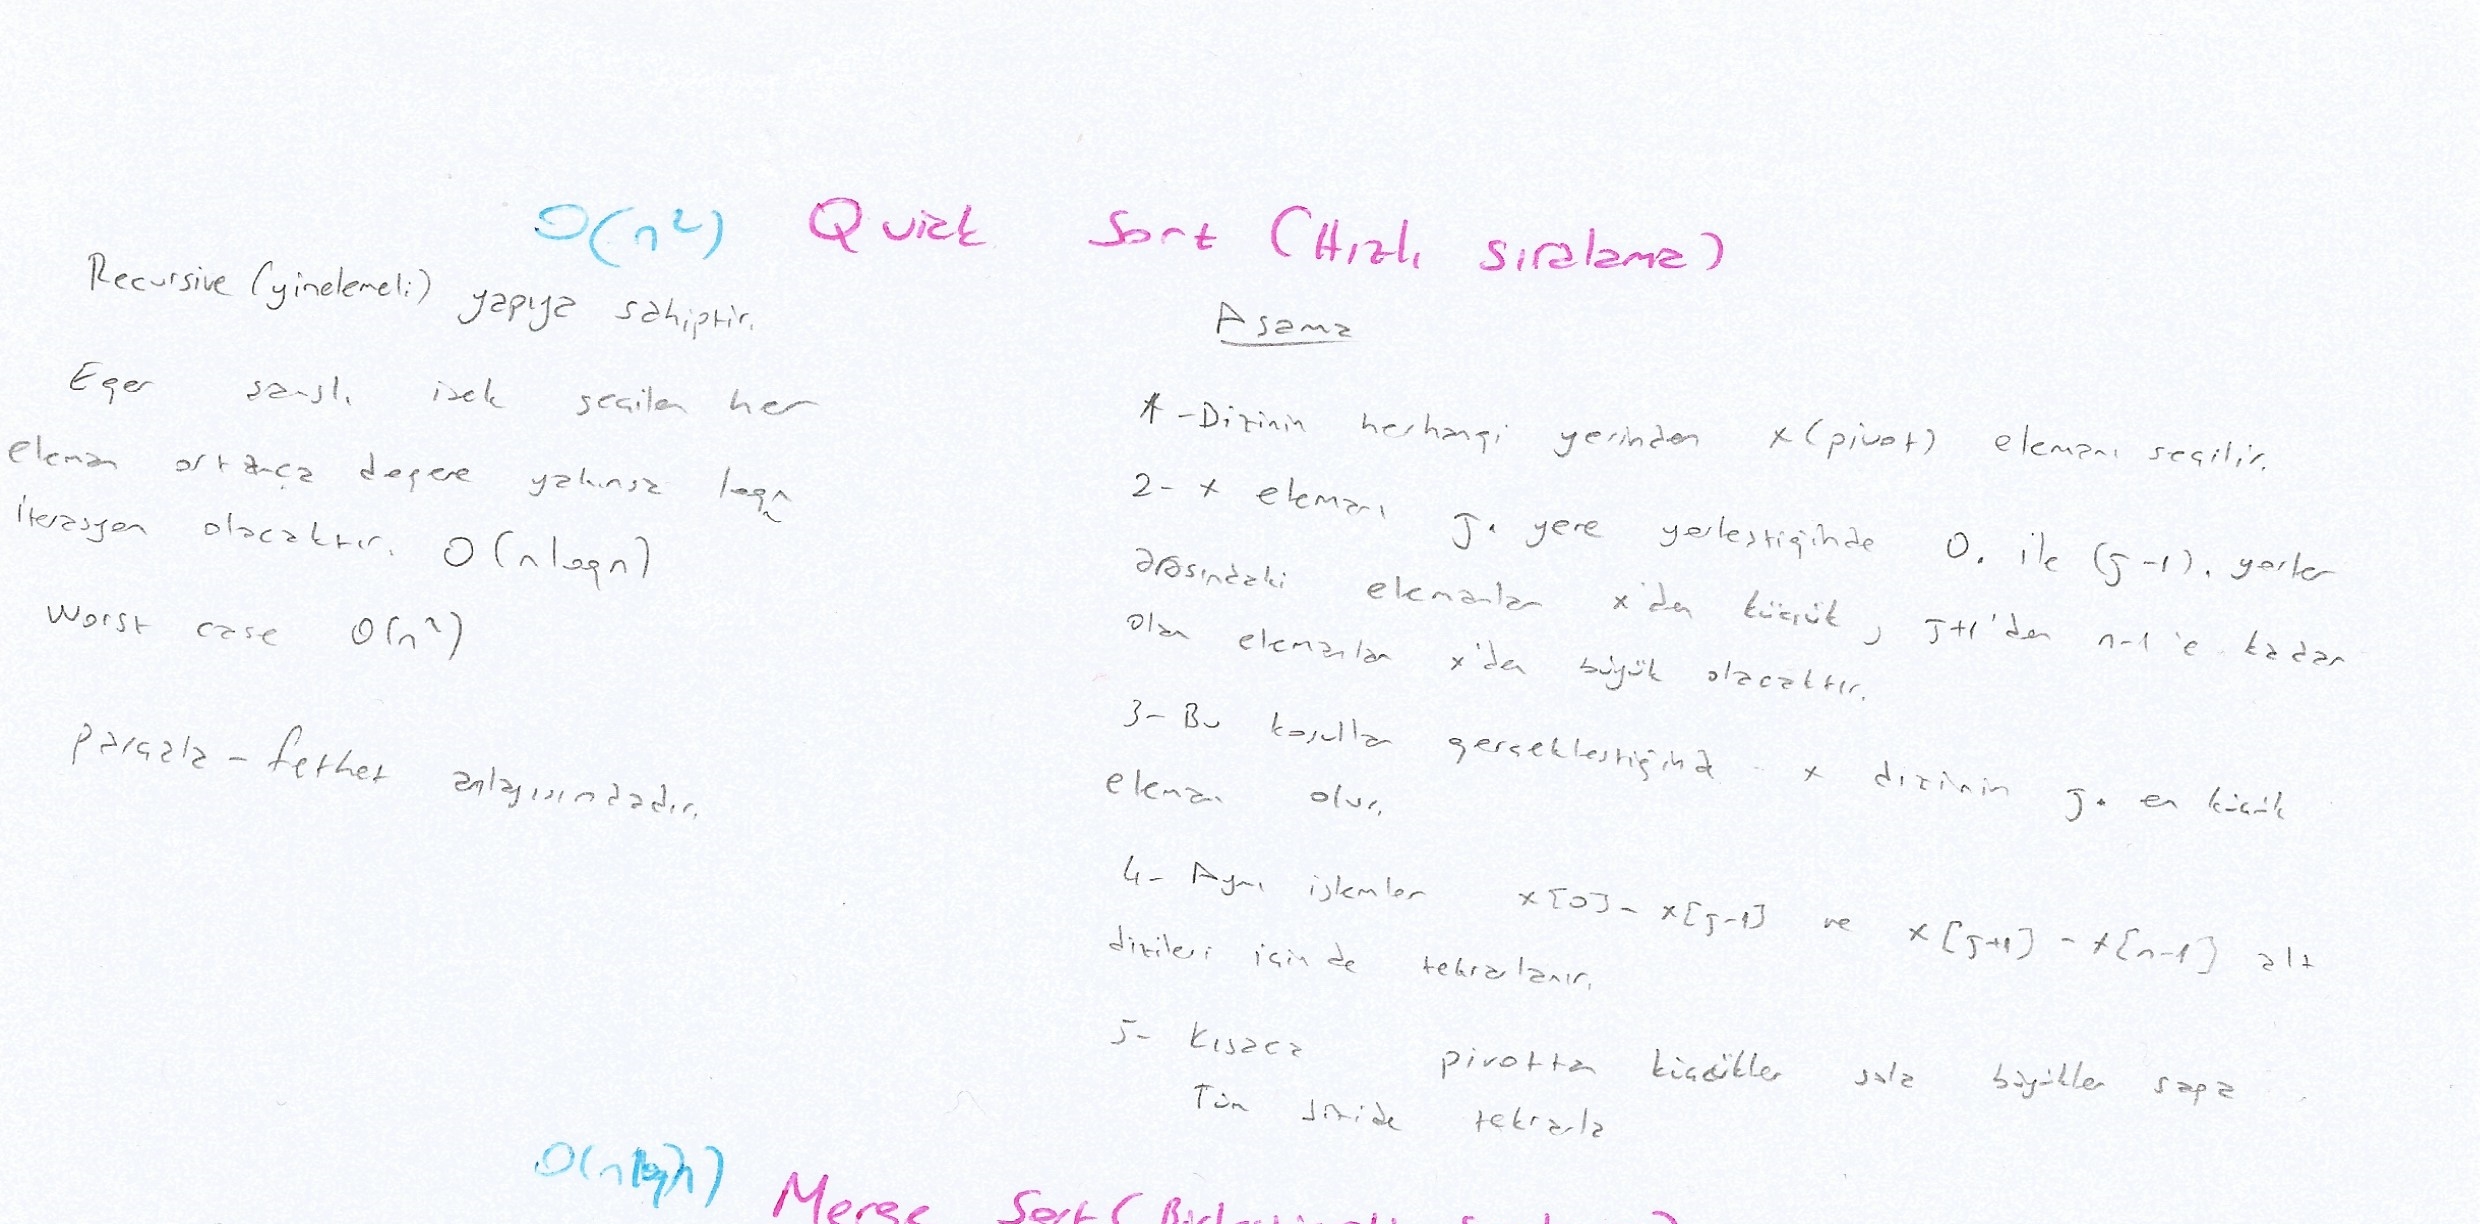 O(n²) Quick Sort (Hızlı sıralama)
Recursive (yinelemeli) yapıya sahiptir.
Eger sanslı isek seçilen her
eleman ortanca degere yakınsa logn
iterasyon olacaktır. O(nlogn)
Worst case O(n²)
parçala - fethet anlayısındadır.
Asama
1-Dizinin herhangi yerinden x(pivot) elemanı seçilir.
2- x elemanı j. yere yerlestiğinde 0. ile (j-1). yerler
arasındaki elemanlar x'den küçük, j+1'den n-1'e kadar
olan elemanlar x'den büyük olacaktır.
3- Bu kosullar gerçeklestiğinde x dizinin j. en küçük
elemanı olur.
4- Aynı işlemler x[0]- x[j-1] ve x[j+1] - x[n-1] alt
dizileri içinde tekrarlanır.
5- Kısaca pivottan küçükler sola büyükler saga
Tüm dizide tekrarla
O(nlogn) Merge Sort (